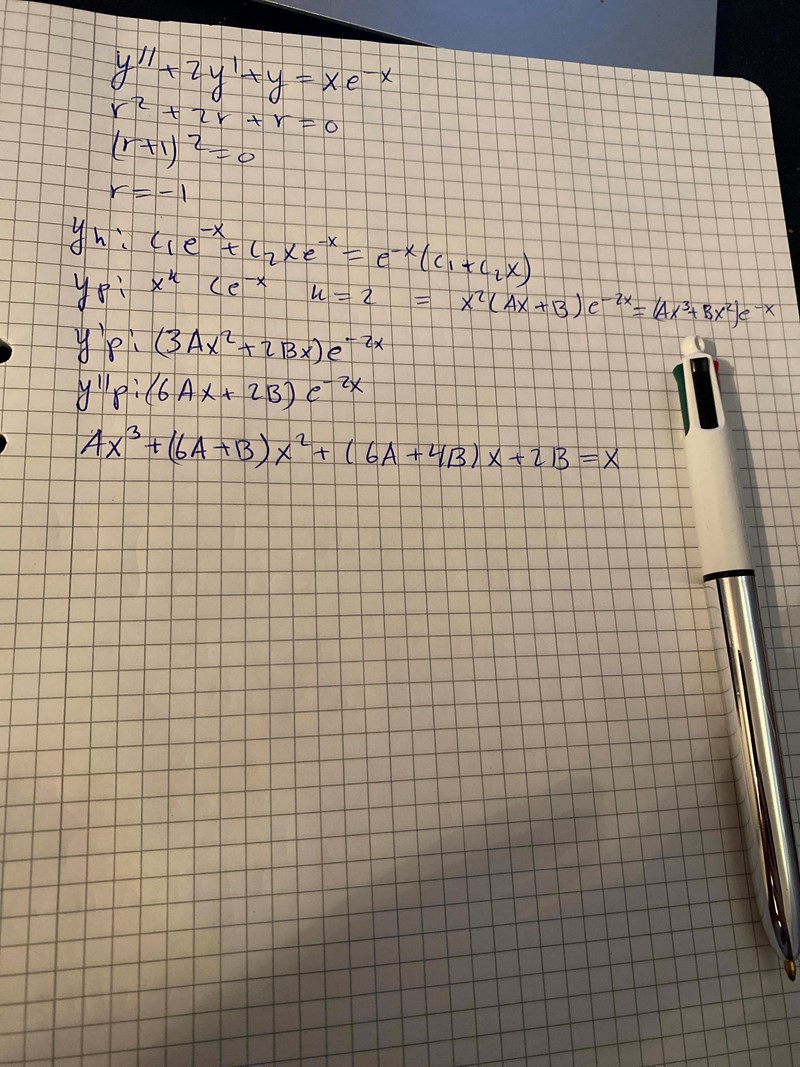 y'' + 2y' + y = xe⁻ˣ
r² + 2r + r = 0
(r+1)² = 0
r = -1
yh: c₁e⁻ˣ + c₂xe⁻ˣ = e⁻ˣ(c₁ + c₂x)
yp: xⁿ Ce⁻ˣ n = 2 = x²(Ax + B)e⁻²ˣ = (Ax³ + Bx²)e⁻ˣ
y'p: (3Ax² + 2Bx)e⁻²ˣ
y''p: (6Ax + 2B)e⁻²ˣ
Ax³ + (6A + B)x² + (6A + 4B)x + 2B = x